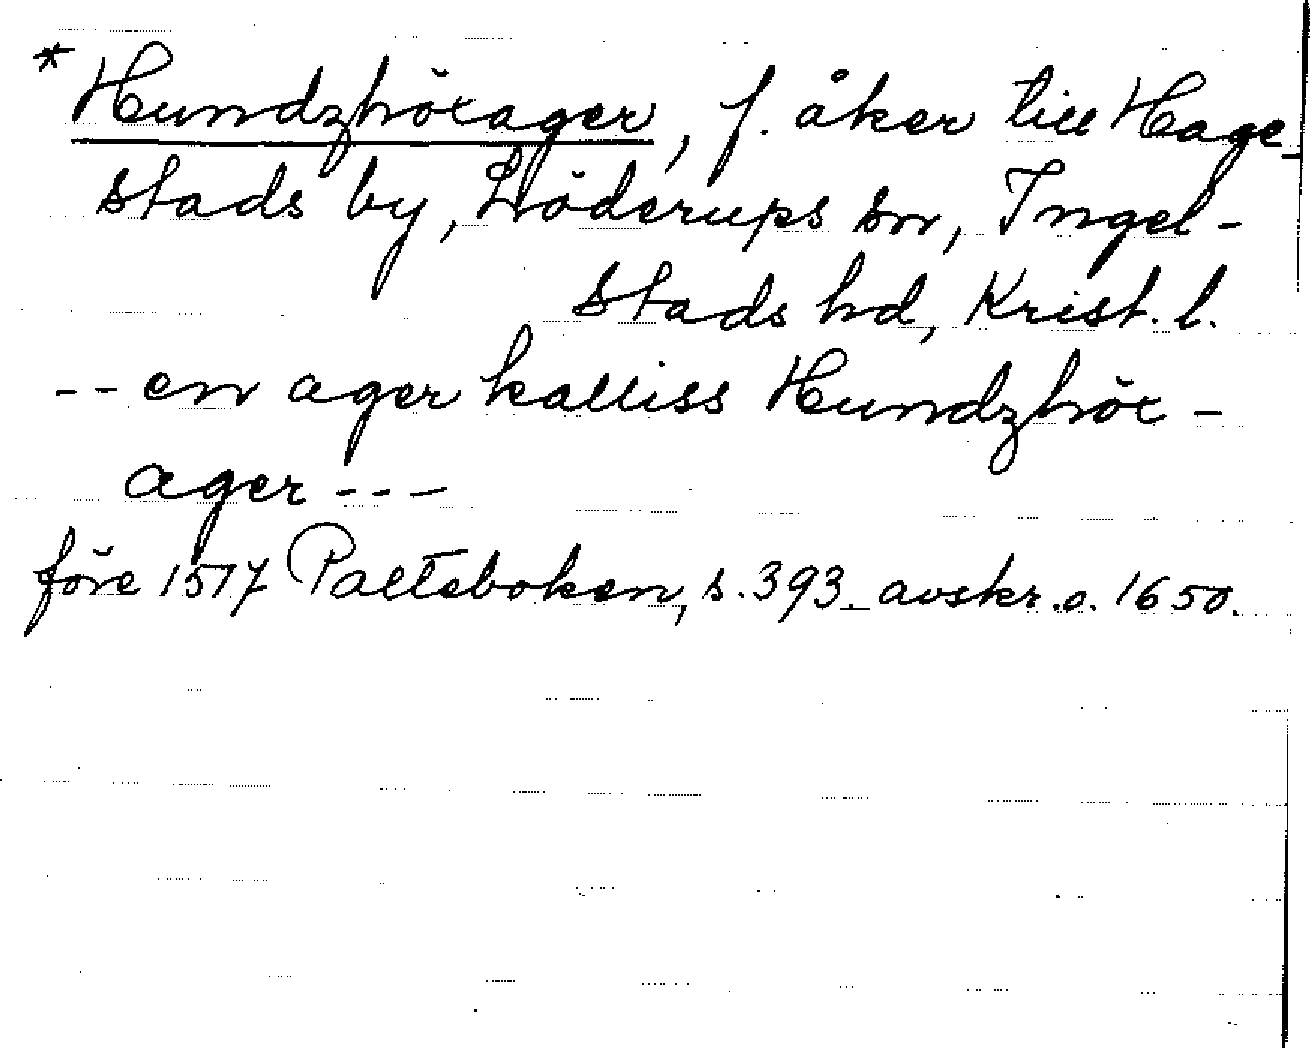 * Hundzhöxager, f. åker till Hage-
stads by, Löderups sn, Ingel-
stads hd, Krist. l.
-- en ager kalliss Hundzhöx-
ager ---
före 1517 Palteboken, s. 393. avskr. o. 1650.